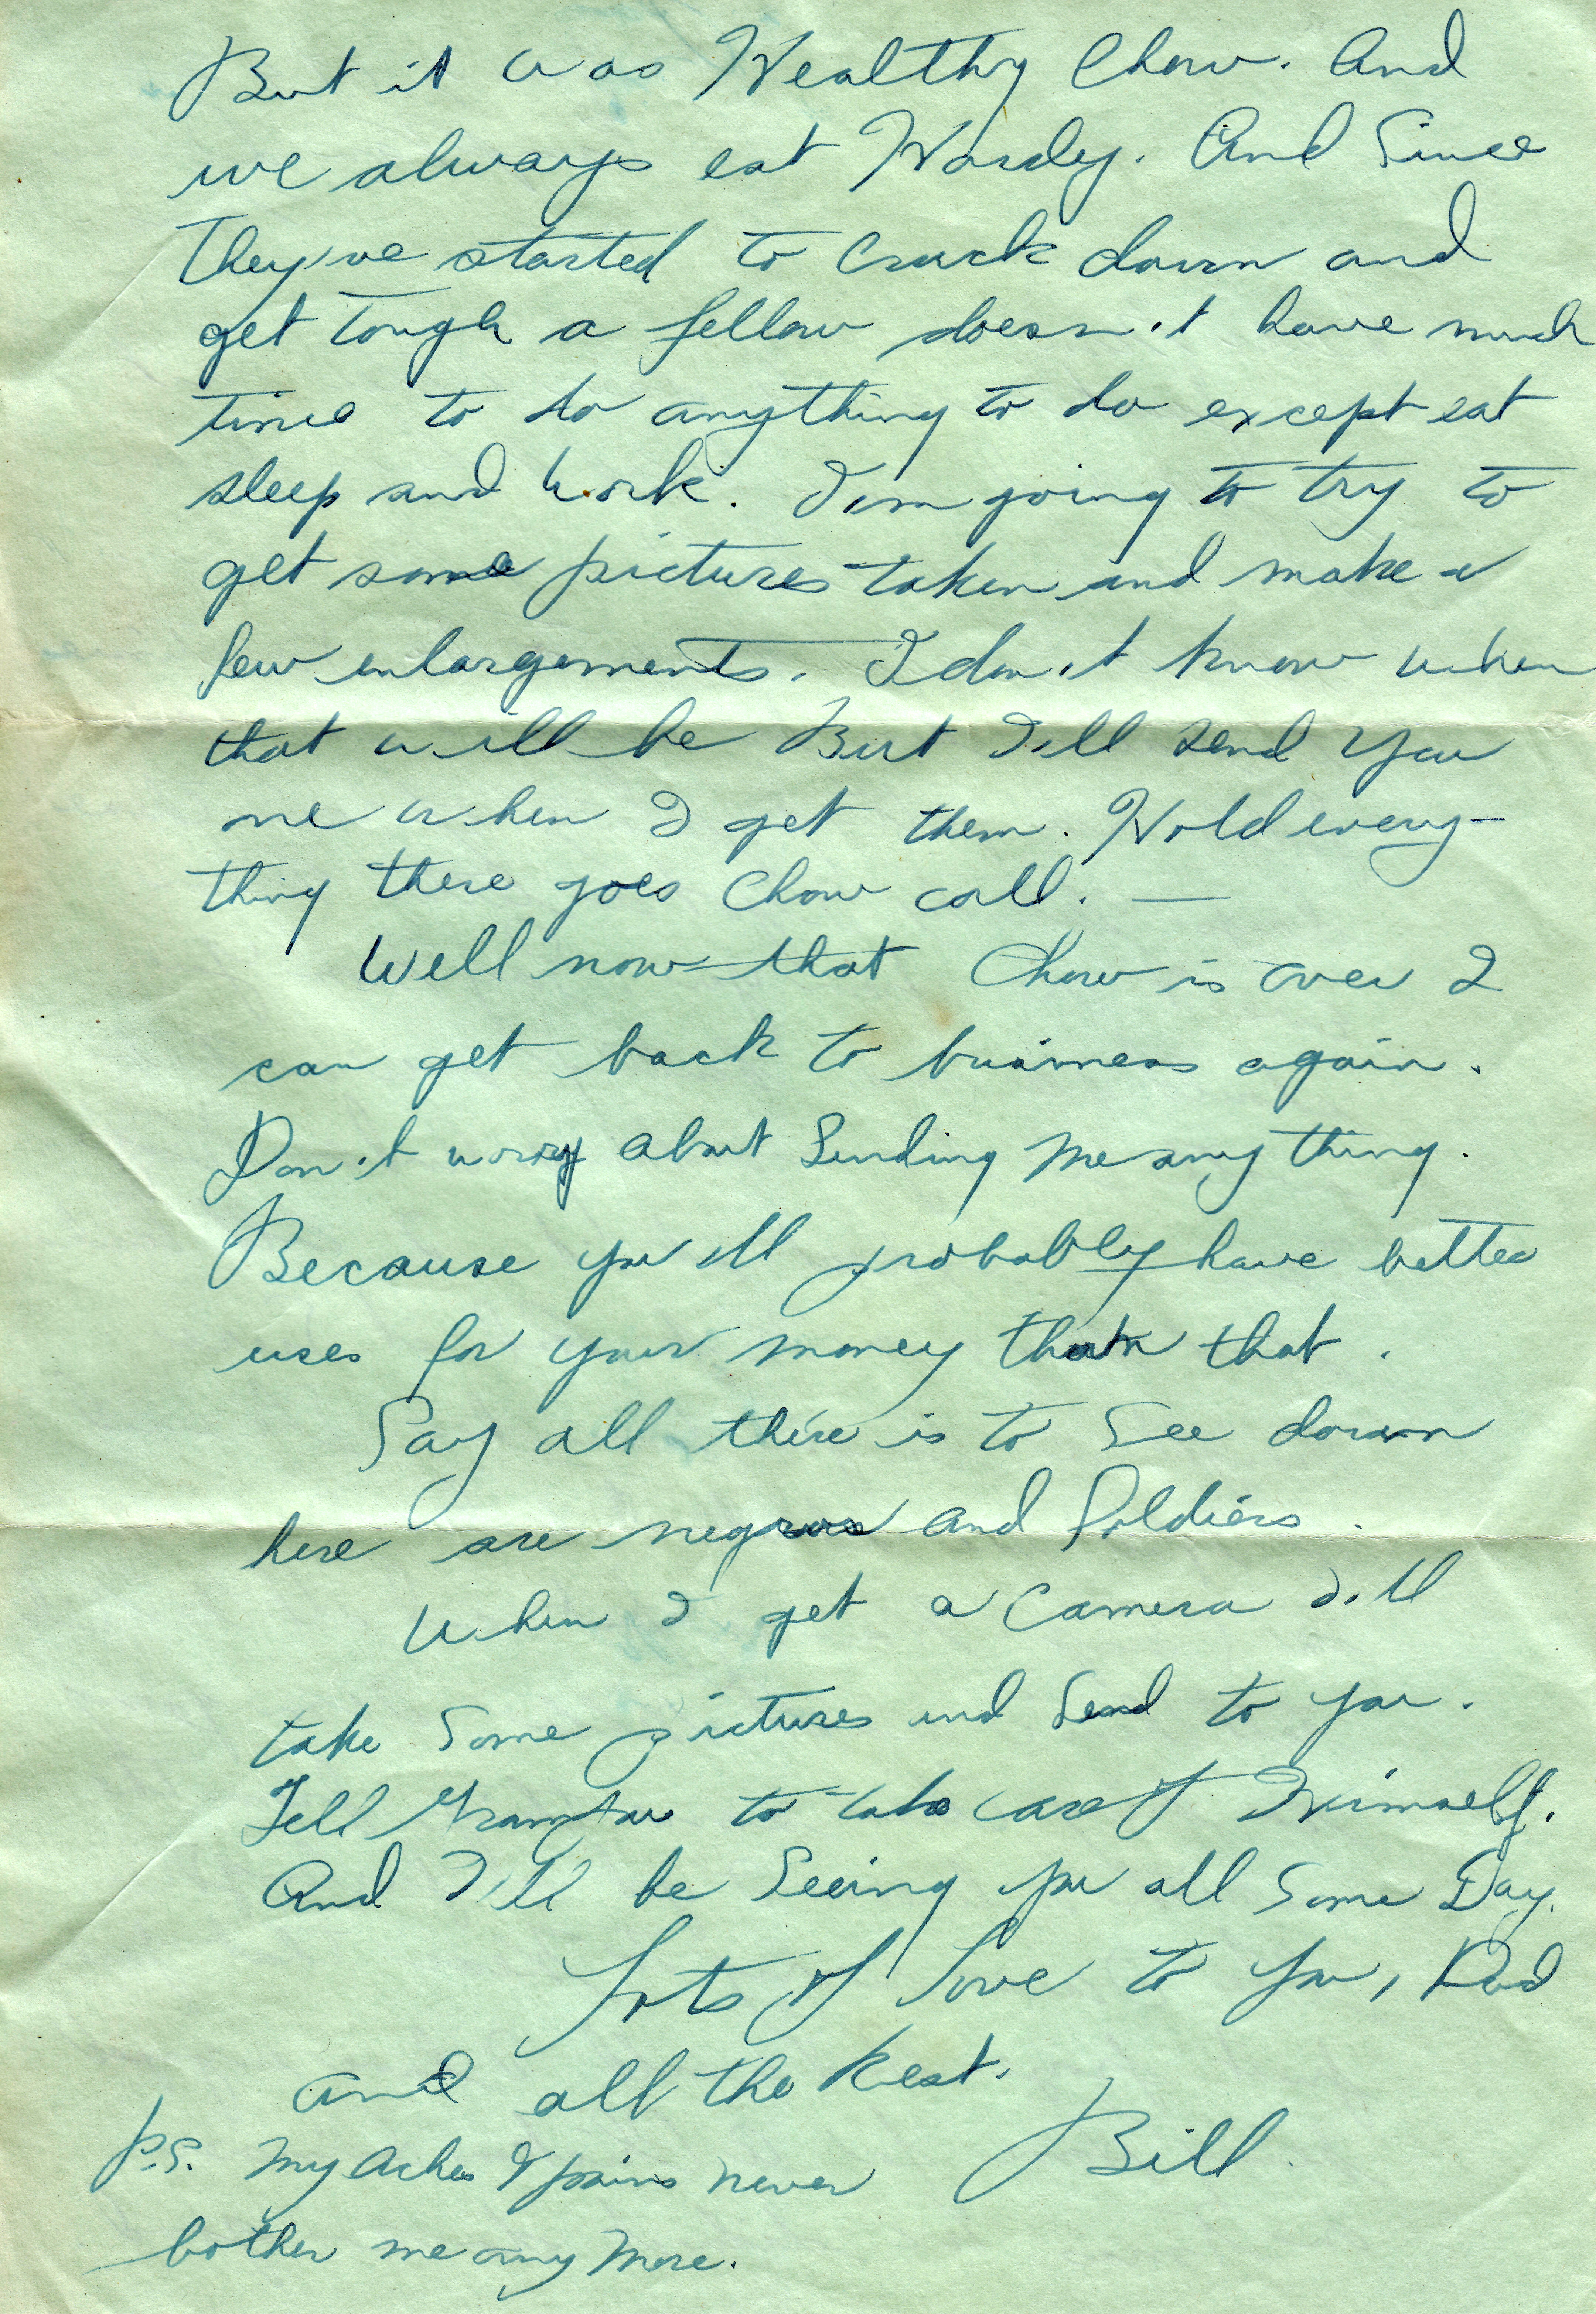 But it was Healthy Chow. And
we always eat Hardy. And Since
They've started to Crack down and
get tough a fellow doesn't have much
time to do anything to do except eat
sleep and work. I'm going to try to
get some pictures taken and make a
few enlargements. I don't know when
that will be But I'll send you
one when I get them. Hold every-
thing there goes Chow call. —
Well now that Chow is over I
can get back to business again.
Don't worry about Sending me anything.
Because you'll probably have better
uses for your money than that.
Say all there is to See down
here are negros and Soldiers.
When I get a Camera I'll
take Some pictures and Send to you.
Tell Grampaw to take care of Himself.
And I'll be Seeing you all Some Day.
Lots of Love to You, Dad
and all the Rest.
Bill
P.S. My Aches & pains never
bother me any More.